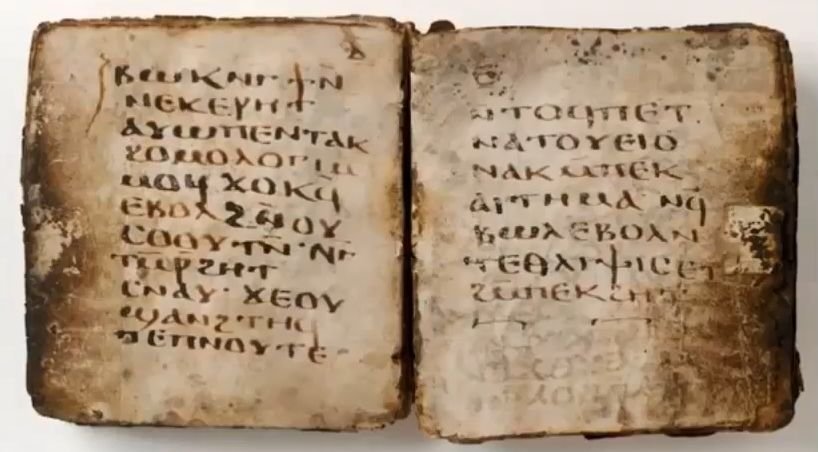 ⲃⲱⲕⲛⲅϯⲛ̄
ⲛⲉⲕⲉⲣⲏⲧ
ⲁⲩⲱⲡⲉⲛⲧⲁⲕ
ϩⲟⲙⲟⲗⲟⲅⲓⲙ
ⲙⲟϥ ϫⲟⲕϥ
ⲉⲃⲟⲗϩⲛ̄ⲟⲩ
ⲥⲟⲟⲩⲧⲛ̄·ⲛⲅ
ⲧⲙ̄ⲣϩⲏⲧ
ⲥⲛⲁⲩ· ϫⲉⲟⲩ
ϣⲁⲛϩⲧⲏϥ
ⲡⲉⲡⲛⲟⲩⲧⲉ·
ⲛⲧⲟϥⲡⲉⲧ
ⲛⲁⲧⲟⲩⲉⲓⲟ
ⲛⲁⲕⲙ̄ⲡⲉⲕ
ⲁⲓⲧⲏⲙⲁ ⲛϥ̄
ⲃⲱⲗⲉⲃⲟⲗⲛ
ⲧⲉⲑⲗⲓⲯⲓⲥⲉⲧ
ϩⲙ̄ⲡⲉⲕϩⲏⲧ·